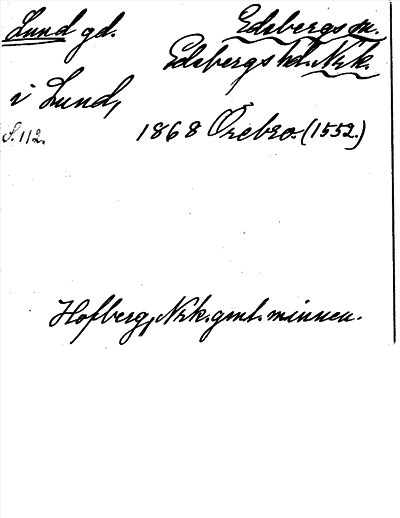 Lund gd. Edsbergs sn.
Edsbergs hd. Nrk.
i Lund,
S. 112. 1868 Örebro. (1552.)
Hofberg, Nrk. gml. minnen.